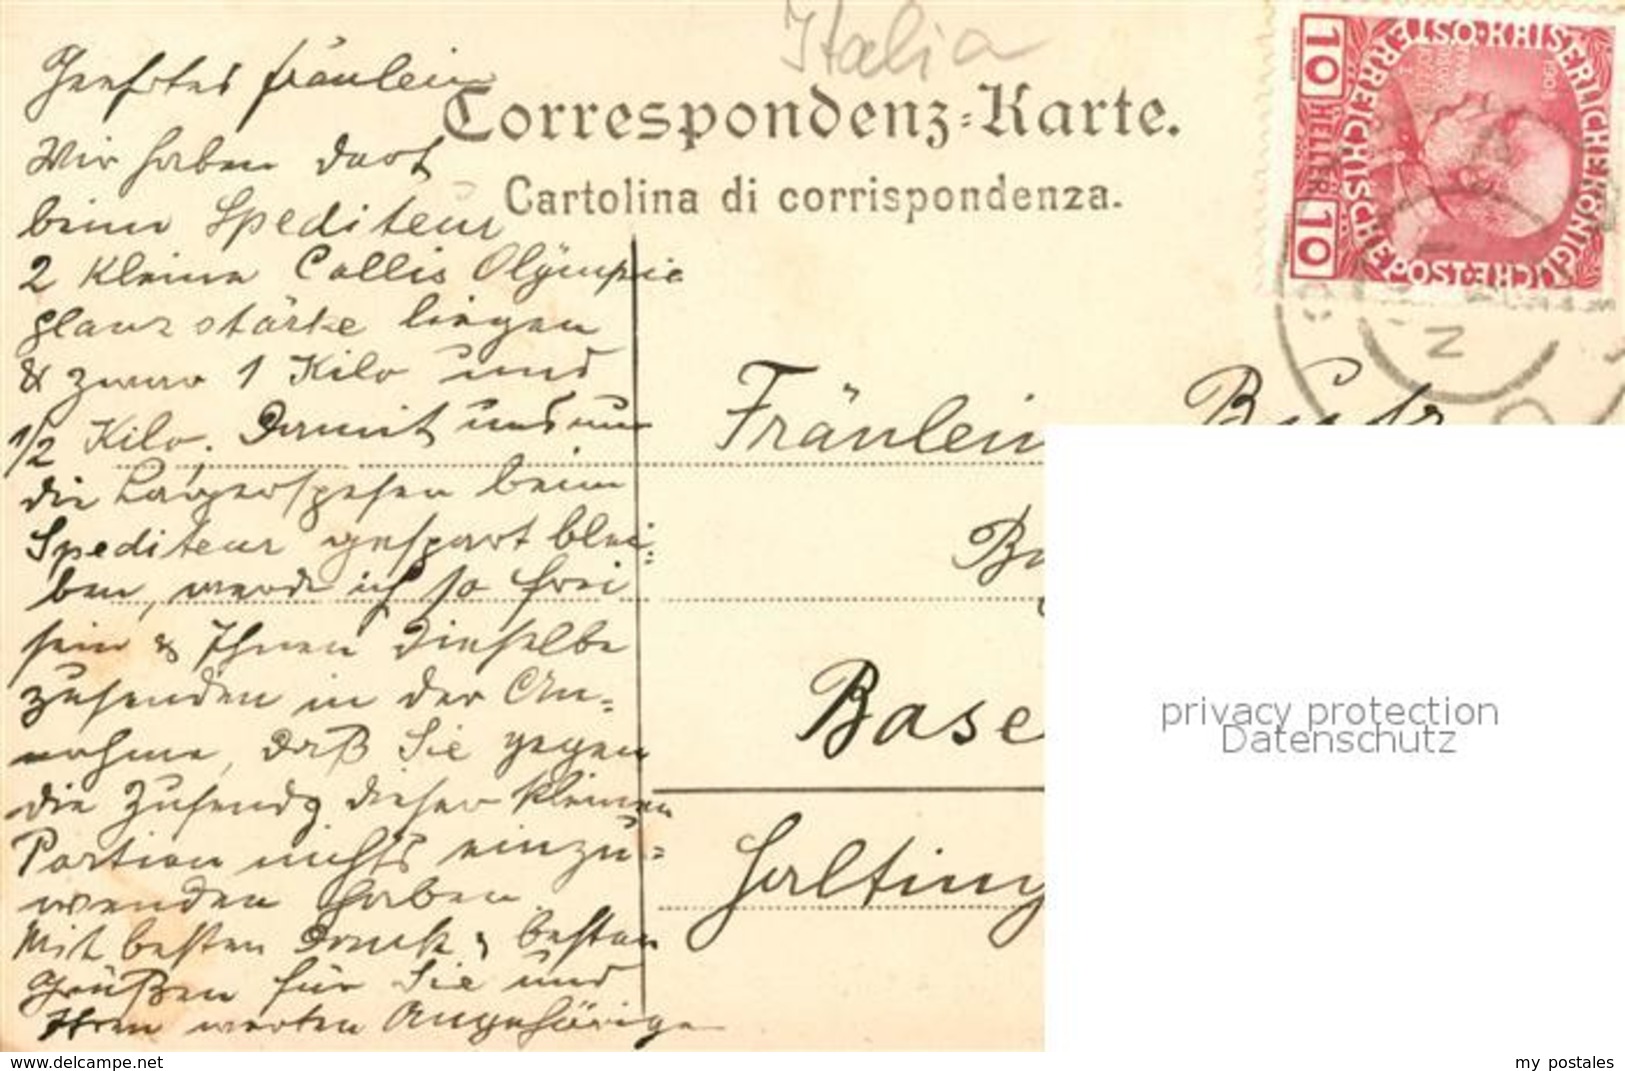 Italia
Correspondenz-Karte.
Cartolina di corrispondenza.
KAISERLICHE KÖNIGLICHE ÖSTERREICHISCHE POST
10 HELLER 10
Geehrtes Fräulein
Wir haben dort
beim Spediteur
2 kleine Collis Olÿmpia
glanzstärke liegen
& zwar 1 Kilo und
1/2 Kilo. Damit uns nun
die Lagerspesen beim
Spediteur gespart blei-
ben, werde ich so frei
sein & Ihnen dieselbe
zusenden in der An-
nahme, daß Sie gegen
die Zusendg dieser kleinen
Partien nichts einzu-
wenden haben.
Mit besten Dank & besten
Grüßen für Sie und
Ihren werten Angehörige
Fräulein
Base
Halting
privacy protection
Datenschutz
www.delcampe.net
my postales